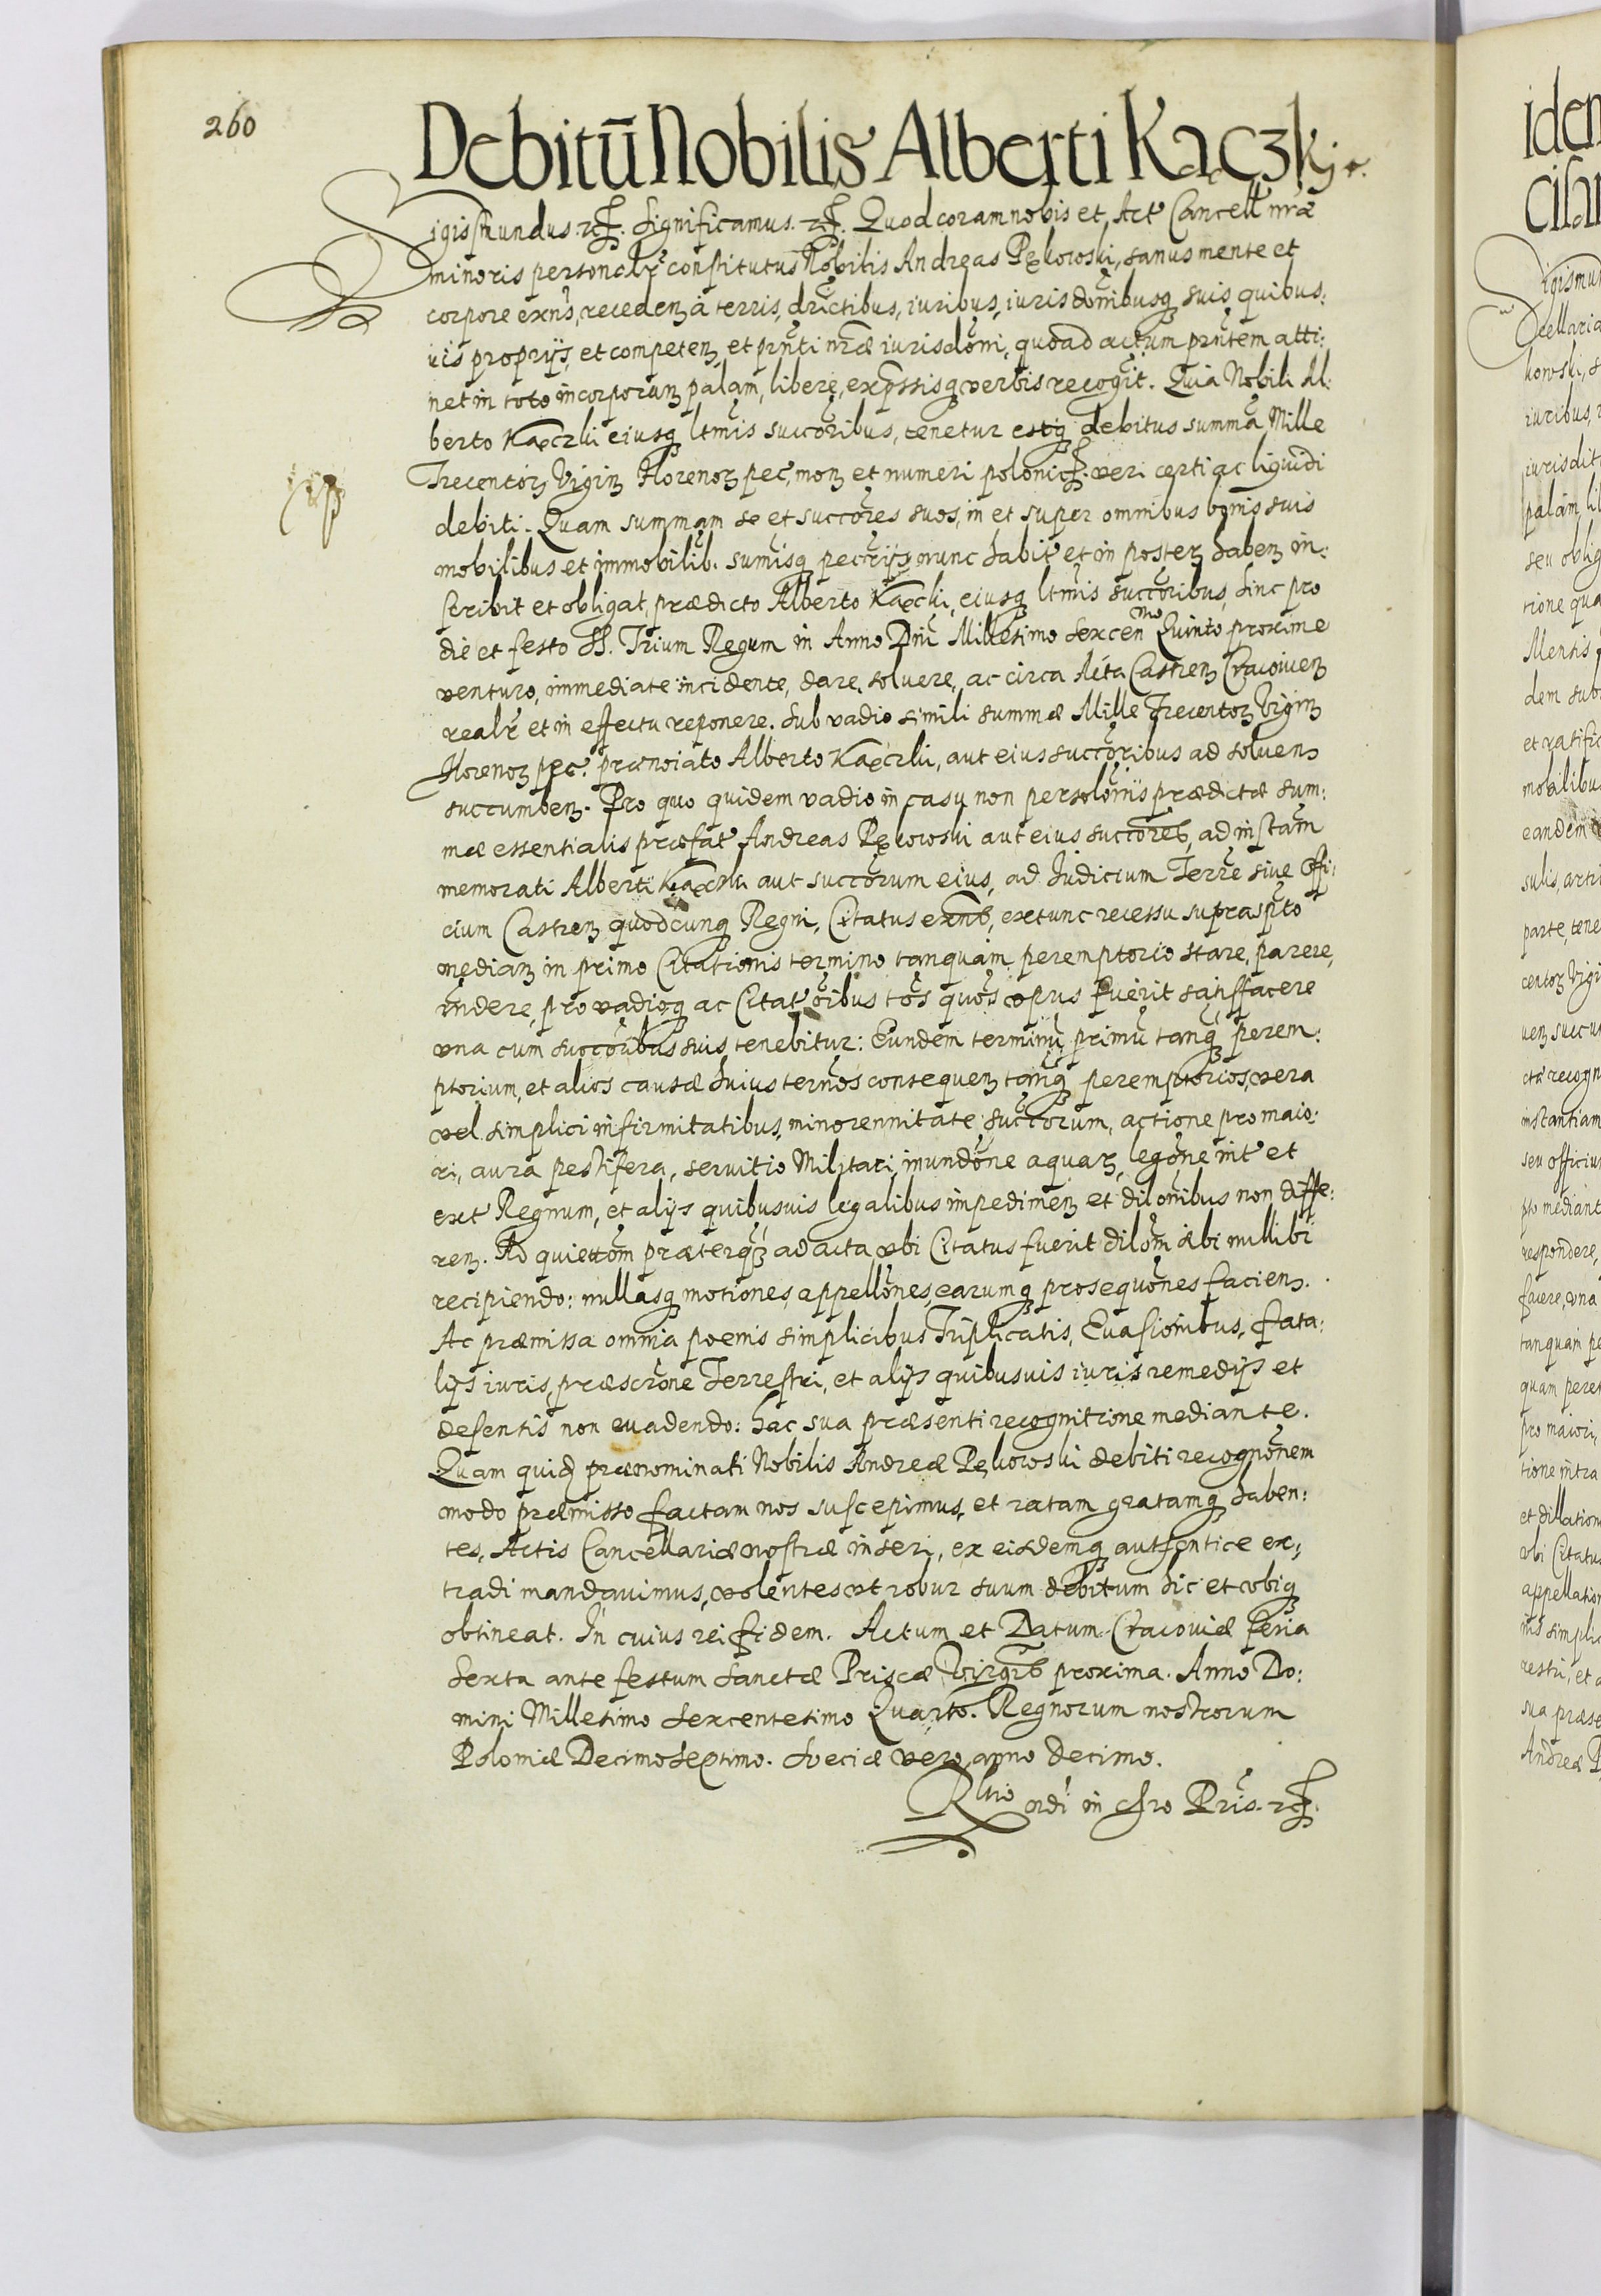 260
Debitū Nobilis Alberti Kaczkj.
Sigismundus. etc. Significamus. etc. Quod coram nobis et Act Cancell nrae
minoris personalr constitutus Nobilis Andreas Pękowski, sanus mente et
corpore exns, recedenʒ à terris, drictibus, iuribus, iurisdonibusq suis quibus:
uis proprijs, et competenʒ, et prnti nrae iurisdoni, quoad actum prntem atti:
net in toto incorporanʒ palam, libere, expssisq verbis recogit. Quia Nobili Al:
berto Kaczki eiusq ltmis succoribus, tenetur estq debitus summa Mille
Trecentorʒ Viginʒ Florenorʒ pec, monʒ et numeri polonic. veri certi ac liquidi
debiti. Quam summam se et succores suos, in et super omnibus bonis suis
mobilibus et immobilib. sumisq pecrijs nunc habit et in posterʒ habenʒ in:
scribit et obligat, praedicto Alberto Kaczki, eiusq ltmis succoribus, hinc pro
die et festo SS. Trium Regum in Anno Dni Millesimo Sexcenmo Quinto proxime
venturo, immediate incidente, dare, solvere, ac circa Acta Castrenʒ Cracoivenʒ
realr et in effectu reponere. Sub vadio simili summae Mille Trecentorʒ Viginʒ
Florenorʒ pec. praenoiato Alberto Kaczki, aut eius succoribus ad solvenʒ
succumbenʒ. Pro quo quidem vadio in casu non persolonis praedictae sum:
mae essentialis praefat Andreas Pękowski aut eius succores, ad instam
memorati Alberti Kaczki aut succorum eius, ad Iudicium Terre siue Offi:
cium Castrenʒ quodcunq Regni, Citatus exns, extunc recessu suprascpto
medianʒ in primo Citationis termino tanquam peremptorio stare, parere,
rndere, pro vadioq ac Citatoribus tos quos opus fuerit satisfacere
vna cum succoribus suis tenebitur: Eundem terminū primū tanq perem:
ptorium, et alios causae huius ternos consequenʒ tanq peremptorios, vera
vel simplici infirmitatibus, minorennitate succorum, actione pro maio:
ri, aura pestifera, seruitio Militari, inundone aquarʒ, legone int et
ext Regnum, et alijs quibusuis legalibus impedimenʒ et dilonibus non diffe:
renʒ. Ad quietiom praeterqʒ ad acta vbi Citatus fuerit dilom alibi nullibi
recipiendo: nullasq motiones, appellones, earumq prosequones facienʒ.
Ac praemissa omnia poenis simplicibus Triplicatis, Euasionibus, fata:
lijs iuris, praescrone Terrestri, et alijs quibusuis iuris remedijs et
defentis non euadendo: hac sua praesenti recognitione mediante.
Quam quid praenominati Nobilis Andreae Pękowski debiti recogonem
modo praemisso factam nos suscepimus, et ratam gratamq haben:
tes, Actis Cancellariae nostrae inseri, ex eisdemq authentice ex:
tradi mandauimus, volentes vt robur suum debitum hic et vbiq
obtineat. In cuius rei fidem. Actum et Datum Cracouiae feria
Sexta ante festum Sanctae Priscae Virgis proxima. Anno Do:
mini Millesimo Sexcentesimo Quarto. Regnorum nostrorum
Poloniae Decimoseptimo. Sveciae vero anno decimo.
Rltio ordi in chro Pris. etc.